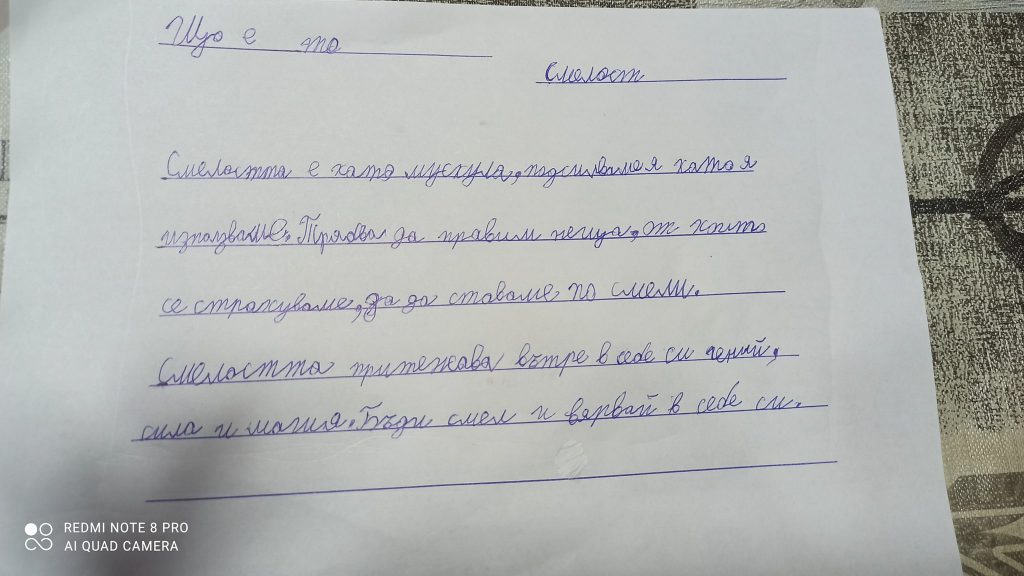 Що е то
Смелост
Смелостта е като мускула, подсилваме я като я
използваме. Трябва да правим неща, от които
се страхуваме, за да ставаме по смели.
Смелостта притежава вътре в себе си гений,
сила и магия. Бъди смел и вярвай в себе си.
REDMI NOTE 8 PRO
AI QUAD CAMERA